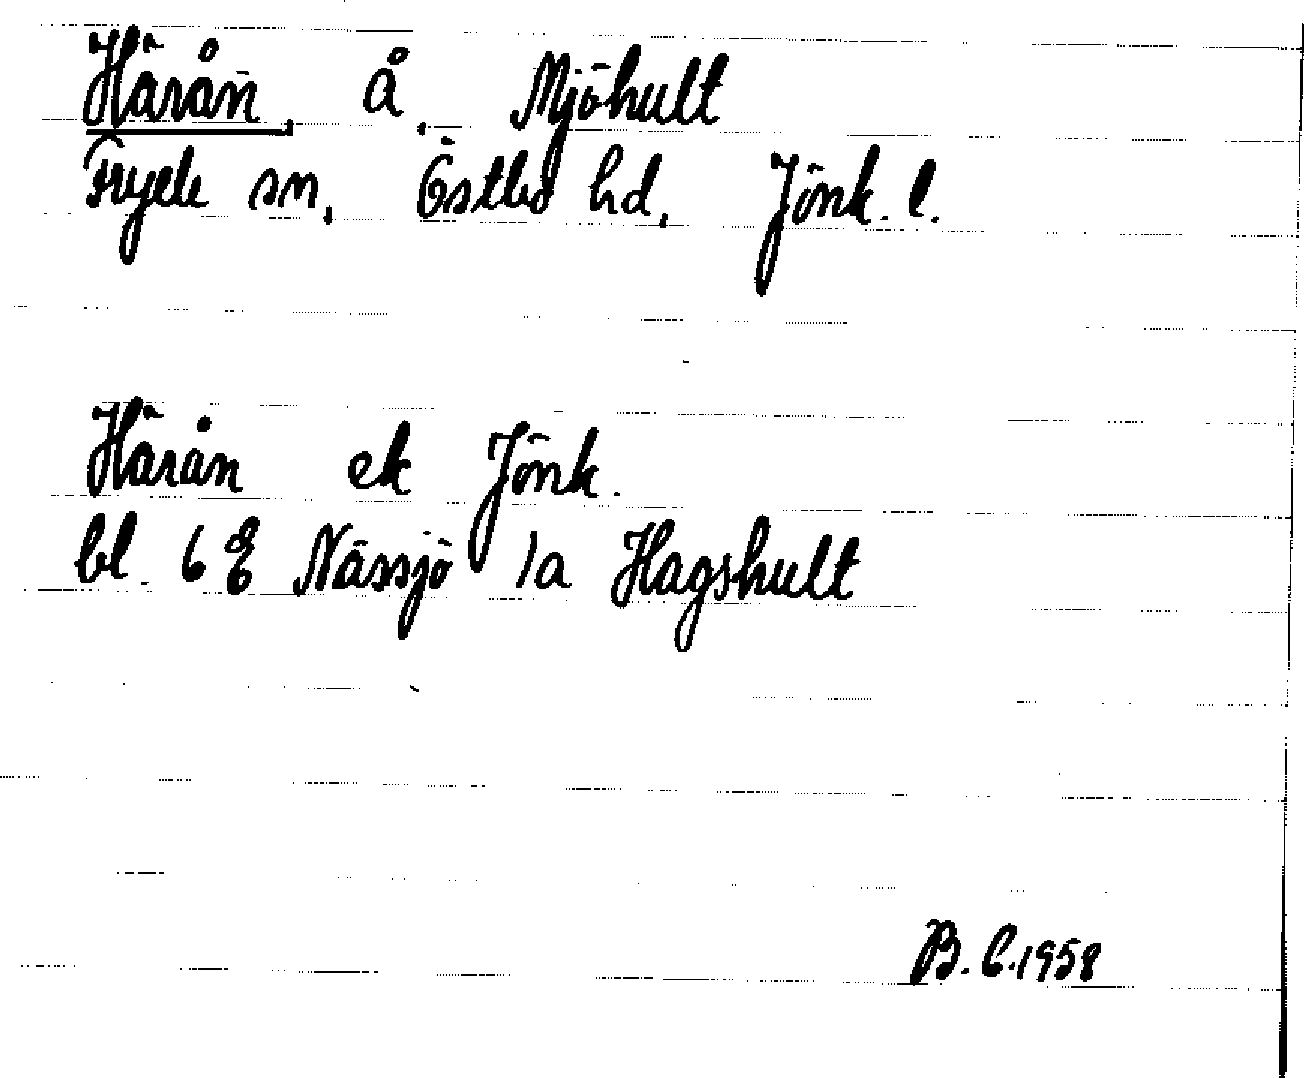 Härån, å, Mjöhult
Fryele sn, Östbo hd, Jönk. l.
Härån ek Jönk.
bl. 6 E Nässjö 1a Hagshult
B. C. 1958